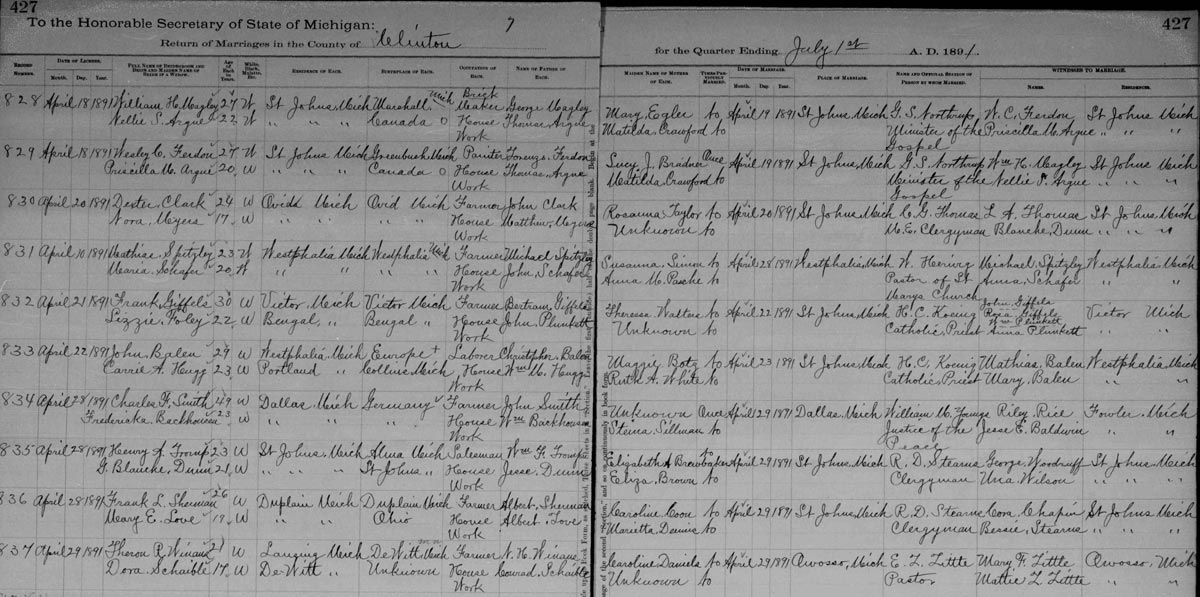 427
To the Honorable Secretary of State of Michigan:
7
Return of Marriages in the County of Clinton
RECORD NUMBER. DATE OF LICENSE. Month. Day. Year. FULL NAME OF BRIDEGROOM AND BRIDE AND MAIDEN NAME OF BRIDE IF A WIDOW. Age of Each in Years. White, Black, Mulatto, Etc. RESIDENCE OF EACH. BIRTHPLACE OF EACH. OCCUPATION OF EACH. NAME OF FATHER OF EACH.
828 April 18 1891 William H. Magley 27 W St Johns Mich Marshall Mich Brick Maker George Magley
Nellie S. Argue 22 W " " " Canada O House Work Thomas Argue
829 April 18 1891 Wesley C. Ferdon 27 W St Johns Mich Greenbush Mich Painter Ferdon
Priscilla M. Argue 20 W " " " Canada O House Work Thomas Argue
830 April 20 1891 Dexter Clark 24 W Ovid Mich Ovid Mich Farmer John Clark
Nora Meyers 17 W " " " " House Work Matthew Meyers
831 April 10 1891 Mathias Spitzley 23 W Westphalia Mich Westphalia Mich Farmer Michael Spitzley
Maria Schafer 20 W " " " " House Work John Schafer
832 April 21 1891 Frank Giffels 30 W Victor Mich Victor Mich Farmer Bertram Giffels
Lizzie Foley 22 W Bengal " Bengal " House Work John Plunkett
833 April 22 1891 John Balen 29 W Westphalia Mich Europe + Laborer Christopher Balen
Carrie A. Hugg 23 W Portland " Collins Mich House Work Wm M. Hugg
834 April 28 1891 Charles F. Smith 49 W Dallas Mich Germany Farmer John Smith
Fredericka Backhouse 23 W " " " House Work Wm Backhouse
835 April 28 1891 Henry A. Troup 23 W St Johns Mich Alma Mich Salesman Wm F. Troup
G. Blanche Dunn 21 W " " " St Johns " House Work Jesse Dunn
836 April 28 1891 Frank L. Sherman 26 W Duplain Mich Duplain Mich Farmer Albert Sherman
Mary E. Love 19 W " " Ohio House Work Albert Love
837 April 29 1891 Theron R. Winans 21 W Lansing Mich DeWitt Mich Farmer N. H. Winans
Dora Schaible 17 W DeWitt " Unknown House Work Conrad Schaible
427
for the Quarter Ending July 1st A. D. 1891.
MAIDEN NAME OF MOTHER OF EACH. TIMES PREVIOUSLY MARRIED. DATE OF MARRIAGE. Month. Day. Year. PLACE OF MARRIAGE. NAME AND OFFICIAL STATION OF PERSON BY WHOM MARRIED. WITNESSES TO MARRIAGE. NAMES. RESIDENCES.
Mary Egler to April 19 1891 St Johns Mich G. S. Northrup W. C. Ferdon St Johns Mich
Matilda Crawford to Minister of the Gospel Priscilla M. Argue " " "
Lucy J. Bradner Once April 19 1891 St Johns Mich G. S. Northrup Wm H. Magley St Johns Mich
Matilda Crawford to Minister of the Gospel Nellie S. Argue " " "
Rosanna Taylor to April 20 1891 St Johns Mich C. G. Thomas L. A. Thomas St Johns Mich
Unknown to M.E. Clergyman Blanche Dunn " " "
Susanna Simon to April 28 1891 Westphalia Mich W. Herwig Michael Spitzley Westphalia Mich
Anna M. Pasche to Pastor of St Marys Church Anna Schafer " "
Theresa Walters to April 22 1891 St Johns Mich H. C. Koenig John Giffels Rosa Giffels Victor Mich
Unknown to Catholic Priest Wm Plunkett Anna Plunkett
Maggie Botz to April 23 1891 St Johns Mich H. C. Koenig Mathias Balen Westphalia Mich
Ruth A. White to Catholic Priest Mary Balen " "
Unknown Once April 29 1891 Dallas Mich William M. Youngs Riley Rice Fowler Mich
Steina Sillman to Justice of the Peace Jesse E. Baldwin " "
Elizabeth A Brewbaker to April 29 1891 St Johns Mich R. D. Stearns George Woodruff St Johns Mich
Eliza Brown to Clergyman Una Wilson " " "
Caroline Coon to April 29 1891 St Johns Mich R. D. Stearns Cora Chapin St Johns Mich
Marietta Dennis to Clergyman Bessie Stearns " " "
Caroline Daniels to April 29 1891 Owosso Mich E. L. Little Mary F. Little Owosso Mich
Unknown to Pastor Mattie L Little " "